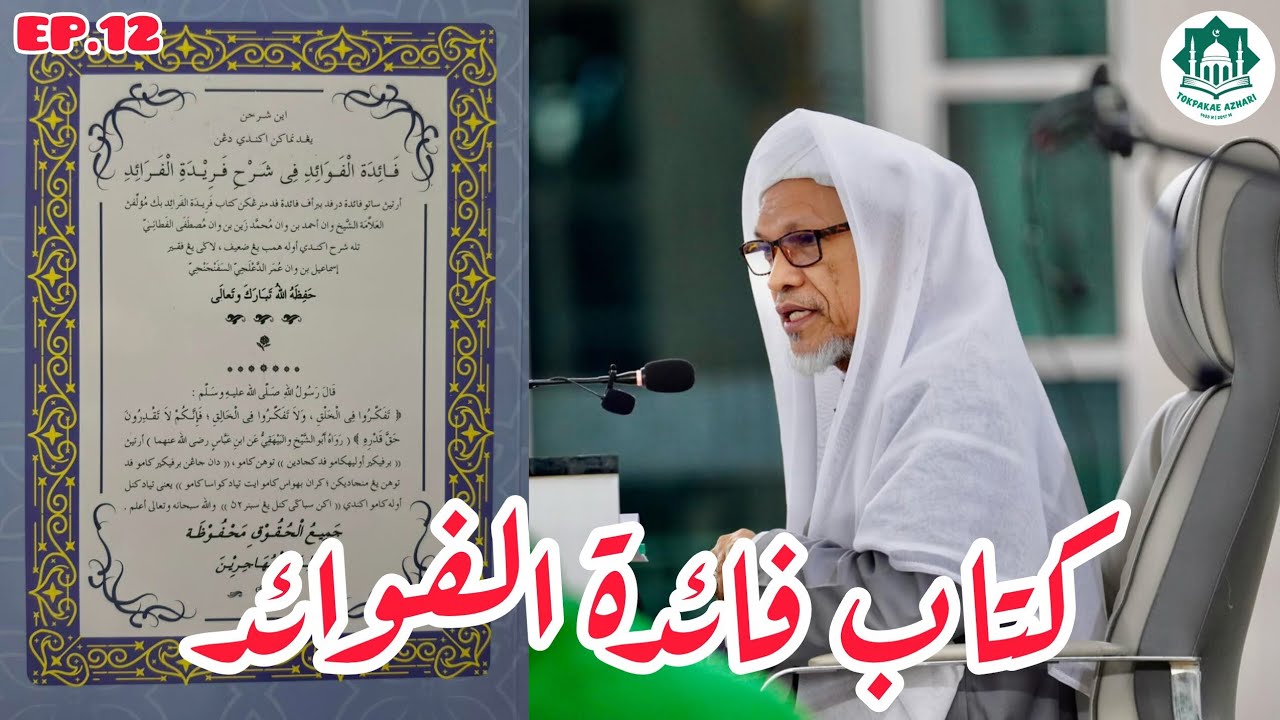 EP.12
اين شرحن
يڠدنماكن اكندي دڠن
فَائِدَة الْفَوَائِدِ فِى شَرْحِ فَرِيْدَةِ الْفَرَائِدِ
أرتين ساتو فائدة درفد ببراف فائدة فد منرڠكن كتاب فَرِيدَة الفَرَائِد بݢ مُؤَلِّفْن
العَلَّامَة الشَّيْخ وان أحمد بن وان مُحمَّد زين بن وان مُصطفَى الفَطَانِيّ
تله شرح اكندي أوله همب يڠ ضعيف ، لاكي يڠ فقير
إسماعيل بن وان عُمَر
حَفِظَهُ اللهُ تَبَارَكَ وَتَعَالَى
قَالَ رَسُولُ اللهِ صَلَّى الله عليه وسَلَّم :
﴿ تَفَكَّرُوا فِى الْخَلْقِ ، وَلاَ تَفَكَّرُوا فِى الْخَالِقِ ، فَإِنَّكُمْ لاَ تَقْدِرُونَ
حَقَّ قَدْرِهِ ﴾ ( رَوَاهُ أَبُو الشَّيْخِ والبَيْهَقِيُّ عَن ابنِ عَبَّاسٍ رضى الله عنهما ) أرتين
(( برفيكير أوليهكامو فد كجادين )) توهن كامو ، (( دان جاڠن برفيكير كامو فد
توهن يڠ منجاديكن ؛ كران بهواس كامو ايت تياد كواسا كامو )) يعني تياد كنل
أوله كامو اكندي (( اكن سباڬي كنل يڠ سبنر٢ن )) والله سبحانه وتعالى أعلم .
جَمِيعُ الْحُقُوْقِ مَحْفُوْظَة
كتاب فائدة الفوائد
TOKPAKAE AZHARI